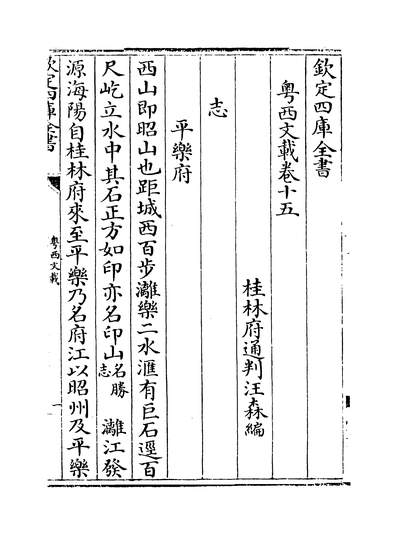 欽定四庫全書
粵西文載卷十五
桂林府通判汪森編
志
平樂府
西山即昭山也距城西百步灕樂二水滙有巨石逕百
尺屹立水中其石正方如印亦名印山名勝志 灕江發
源海陽自桂林府來至平樂乃名府江以昭州及平樂
欽定四庫全書
粵西文載
一